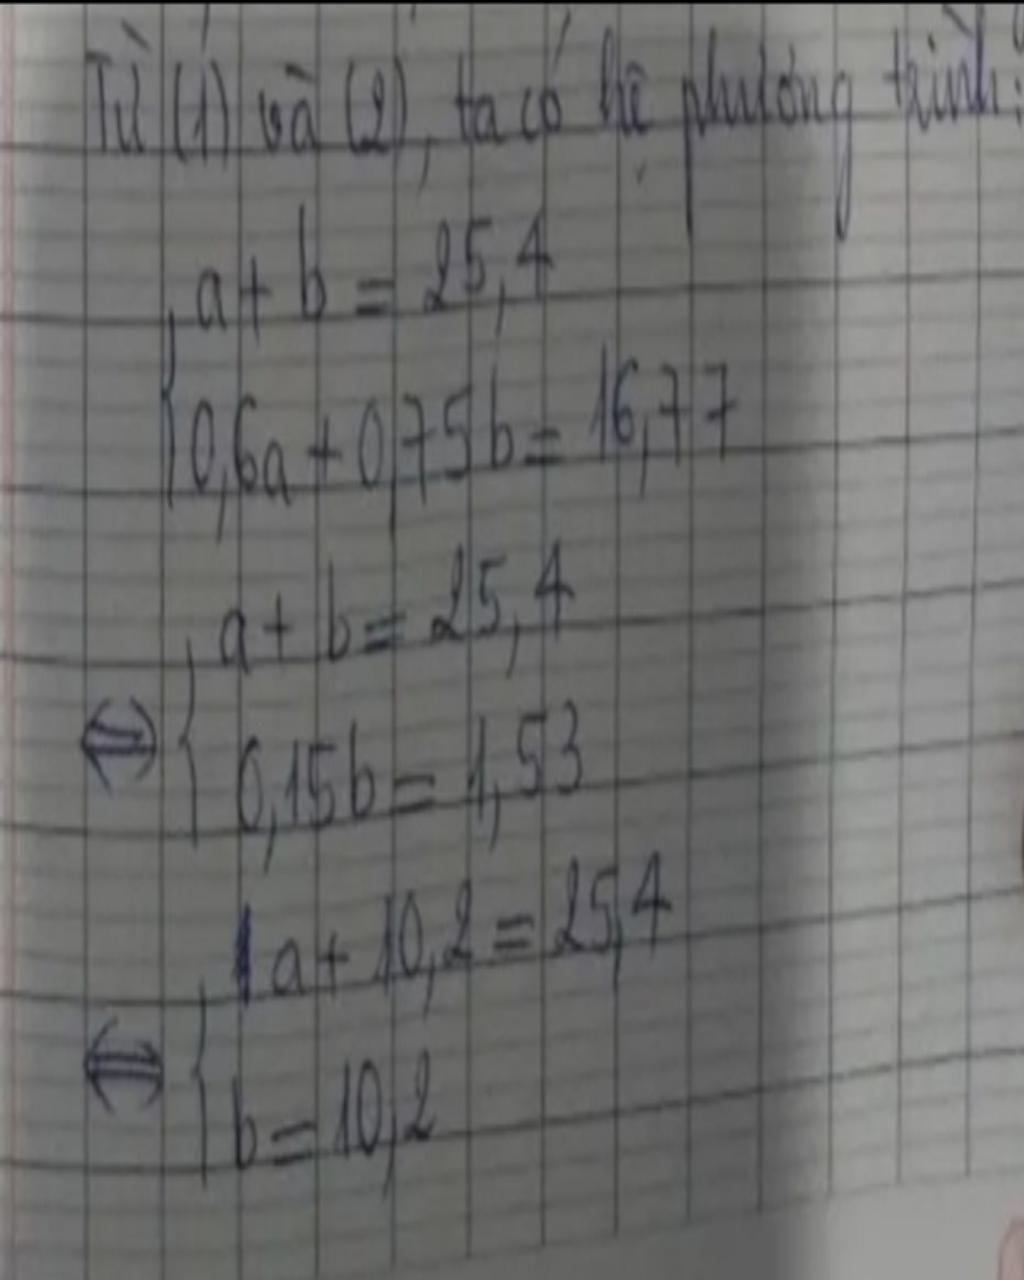 Từ (1) và (2), ta có hệ phương trình:
{ a + b = 25,4
0,6a + 0,75b = 16,77
⇔ { a + b = 25,4
0,15b = 1,53
⇔ { 1a + 10,2 = 25,4
b = 10,2